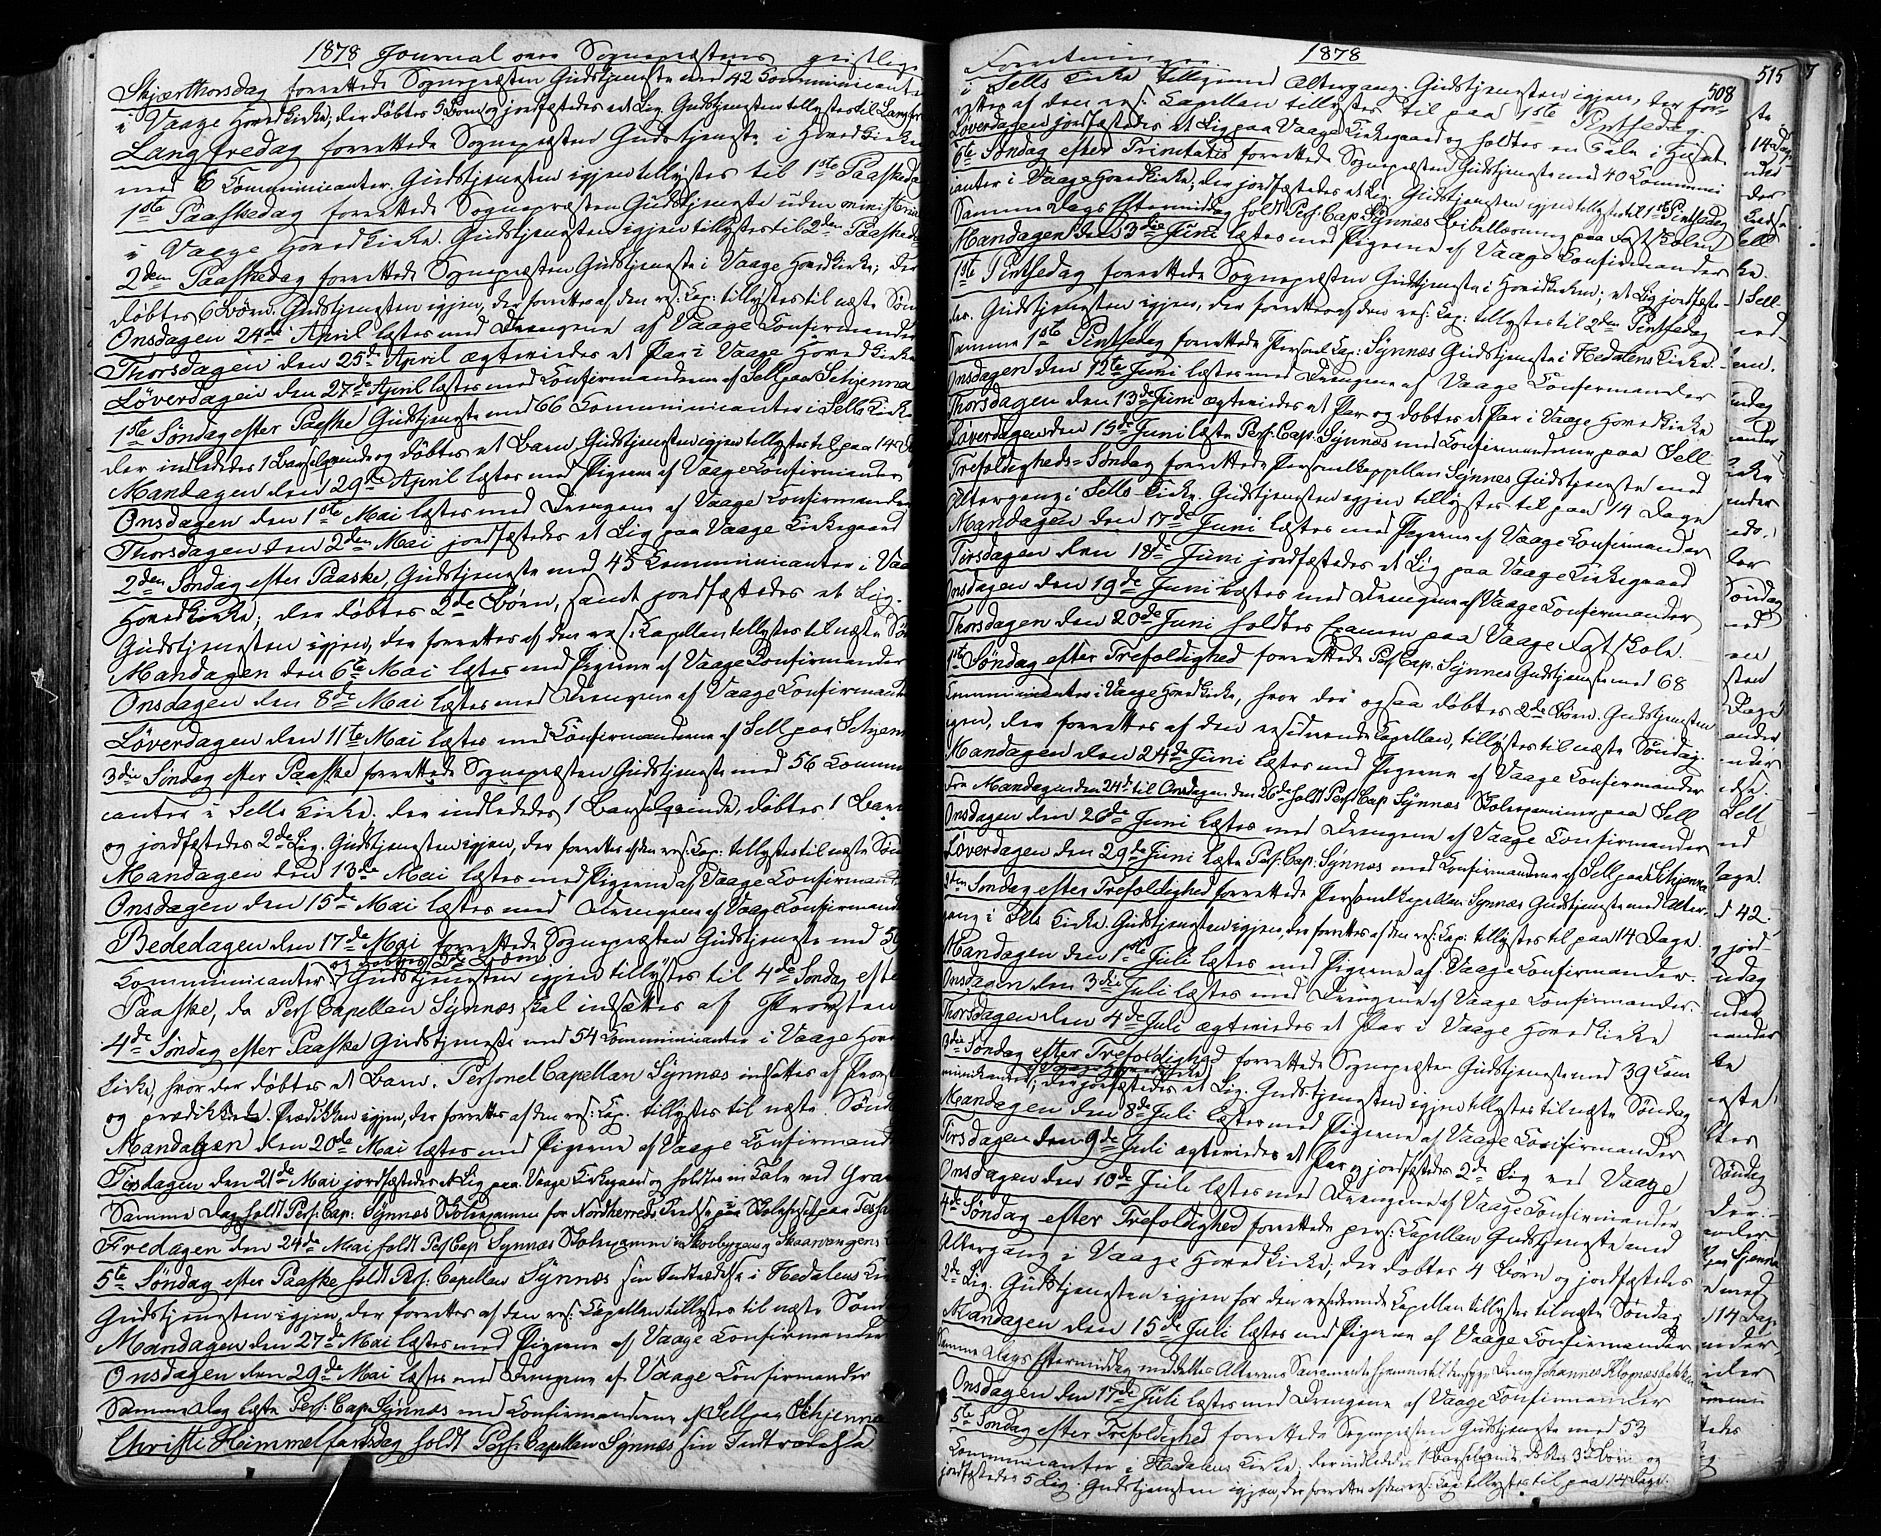 1878 Journal over Sognepræstens geistlige
Skjærthorsdag forrettede Sognepræsten Gudstjeneste med 42 Communicanter
i Vaage Hovedkirke; der døbtes 5 Børn og jordfæstedes et Lig. Gudstjenesten tillystes til Langfr
Langfredag forrettede Sognepræsten Gudstjeneste i Hovedkirken
med 6 Communicanter. Gudstjenesten igjen tillystes til 1ste Paaskedag
1ste Paaskedag forrettede Sognepræsten Gudstjeneste uden ministerialia
i Vaage Hovedkirke. Gudstjenesten igjen tillystes til 2den Paaskedag
2den Paaskedag forrettede Sognepræsten Gudstjeneste i Vaage Hovedkirke; der
døbtes 6 Børn. Gudstjenesten igjen, der forrettes af den res: Cap: tillystes til næste Sønd
Onsdagen 24de April læstes med Drengene af Vaage Confirmander
Thorsdagen den 25de April ægteviedes et Par i Vaage Hovedkirke
Løverdagen den 27de April læstes med Confirmanderne af Sell paa Selsjenna
1ste Søndag efter Paaske Gudstjeneste med 66 Communicanter i Sells Kirke
der indlededes 1 Barselqvinde og døbtes et Barn. Gudstjenesten igjen tillystes til paa 14 D
Mandagen den 29de April læstes med Pigerne af Vaage Confirmander
Onsdagen den 1ste Mai læstes med Drengene af Vaage Confirmander
Thorsdagen den 2den Mai jordfæstedes et Lig paa Vaage Kirkegaard
2den Søndag efter Paaske, Gudstjeneste med 45 Communicanter i Vaa
Hovedkirke; der døbtes 2de Børn, samt jordfæstedes et Lig.
Gudstjenesten igjen, der forrettes af den res: Kapellan tillystes til næste Søn
Mandagen den 6te Mai læstes med Pigerne af Vaage Confirmander
Onsdagen den 8de Mai læstes med Drengene af Vaage Confirmand
Løverdagen den 11te Mai læstes med Confirmanderne af Sell paa
3die Søndag efter Paaske forrettede Sognepræsten Gudstjeneste med 56 Commu
canter i Sells Kirke; der indlededes 1 Barselqvinde, døbtes 1 Barn
og jordfæstedes 2de Lig. Gudstjenesten igjen, der forrettes af den res: Cap: tillystes til næste Søn
Mandagen den 13de Mai læstes med Pigerne af Vaage Confirmand
Onsdagen den 15de Mai læstes med Drengene af Vaage Confirmand
Bededagen den 17de Mai forrettede Sognepræsten Gudstjeneste med 5
og døbtes 3de Børn
Communicanter. Gudstjenesten igjen tillystes til 4de Søndag efter
Paaske, da Pers Capellan Synnæs skal indsættes af Provsten
4de Søndag efter Paaske Gudstjeneste med 54 Communicanter i Vaage Hoved
kirke, hvor der døbtes et Barn. Personel Capellan Synnæs indsattes af Provst
og prædikkede. Prædikken igjen, der forrettes af den res: Cap. tillystes til næste Sønd
Mandagen den 20de Mai læstes med Pigerne af Vaage Confirmand
Tirsdagen den 21de Mai jordfæstedes et Lig paa Vaage Kirkegaard og holdtes en Tale ved Grav
Samme Dag holdt Pers: Cap: Synnæs Skoleexamen for Nordherreds Kreds paa
Fredagen den 24de Mai holdt Pers Cap Synnæs Skoleexamen i Skovbygens og Skaarvangens
5te Søndag efter Paaske holdt Pers: Capellan Synnæs sin Indtrædelse i Hedalens Kir
Gudstjenesten igjen, der forrettes af den res: Capellan tillystes til næste Sønd
Mandagen den 27de Mai læstes med Pigerne af Vaage Confirmander
Onsdagen den 29de Mai læstes med Drengene af Vaage Confirmander
Samme Dag læste Pers: Cap: Synnæs med Confirmanderne af Sell paa
Christi Himmelfartsdag holdt Pers: Capellan Synnæs sin Indtrædelse
Forretninger. 1878
508
i Sells Kirke tilligemed Altergang. Gudstjenesten igjen, der for-
rettes af den res: Capellan tillystes til paa 1ste Pintsedag.
Løverdagen jordfæstedes et Lig paa Vaage Kirkegaard og holdtes en Tale i Huset
6te Søndag efter forrettede Sognepræsten Gudstjeneste med 40 Communi
canter i Vaage Hovedkirke; der jordfæstedes et Lig. Gudstjenesten igjen tillystes til 1ste Pintsedag
Samme Dags Eftermiddag holdt Pers: Cap Synnæs Bibellæsning paa fast Skolen
Mandagen den 3die Juni læstes med Pigerne af Vaage Confirmander
1ste Pintsedag forrettede Sognepræsten Gudstjeneste i Hovedkirken; et Lig jordfæste-
des. Gudstjenesten igjen, der forrettes af den res: Cap: tillystes til 2den Pintsedag
Samme 1ste Pintsedag forrettede Personel Cap: Synnæs Gudstjeneste i Hedalens Kirke.
Onsdagen den 12te Juni læstes med Drengene af Vaage Confirmander
Thorsdagen den 13de Juni ægteviedes et Par og døbtes et Par i Vaage Hovedkirke
Løverdagen den 15de Juni læste Pers: Cap: Synnæs med Confirmanderne paa Sell
Trefoldigheds=Søndag forrettede Personelkapellan Synnæs Gudstjeneste med
Altergang i Sells Kirke. Gudstjenesten igjen tillystes til paa 14 Dage
Mandagen den 17de Juni læstes med Pigerne af Vaage Confirmander
Tirsdagen den 18de Juni jordfæstedes et Lig paa Vaage Kirkegaard
Onsdagen den 19de Juni læstes med Drengene af Vaage Confirmander
Thorsdagen den 20de Juni holdtes Examen paa Vaage Fast Skole.
1ste Søndag efter Trefoldighed forrettede Pers Cap: Synnæs Gudstjeneste med 68
Communicanter i Vaage Hovedkirke, hvor der ogsaa døbtes 2de Børn. Gudstjenesten
igjen, der forrettes af den residerende Capellan, tillystes til næste Søndag.
Mandagen den 24de Juni læstes med Pigerne af Vaage Confirmander
Fra Mandagen den 24de til Onsdagen den 26de holdt Pers: Cap Synnæs Skoleexamener paa Sell
Onsdagen den 26de Juni læstes med Drengene af Vaage Confirmander
Løverdagen den 29de Juni læste Pers: Cap: Synnæs med Confirmanderne af Sell paa
2den Søndag efter Trefoldighed forrettede Personelkapellan Synnæs Gudstjeneste med Alter-
gang i Sells Kirke. Gudstjenesten igjen, der forrettes af den res: Cap: tillystes til paa 14 Dage.
Mandagen den 1ste Juli læstes med Pigerne af Vaage Confirmander.
Onsdagen den 3die Juli læstes med Drengene af Vaage Confirmander.
Thorsdagen den 4de Juli ægteviedes et Par i Vaage Hovedkirke
3die Søndag efter Trefoldighed forrettede Sognepræsten Gudstjeneste med 39 Com
i Vaage Hovedkirke
municanter; der jordfæstedes et Lig. Gudstjenesten igjen tillystes til næste Søndag
Mandagen den 8de Juli læstes med Pigerne af Vaage Confirmander
Tirsdagen den 9de Juli ægteviedes et Par og jordfæstedes 2de Lig ved Vaage
Onsdagen den 10de Juli læstes med Drengene af Vaage Confirmander
4de Søndag efter Trefoldighed forrettede pers: Capellan Gudstjeneste med
Altergang i Vaage Hovedkirke, der døbtes 4 Børn og jordfæstedes
2de Lig. Gudstjenesten igjen for den residerende Capellan tillystes til næste Søndag
Mandagen den 15de Juli læstes med Pigerne af Vaage Confirmander
Samme Dags Eftermiddag meddeltes Alterens Sacramente hjemme til den syge Dreng Johannes
Onsdagen den 17de Juli læstes med Drengene af Vaage Confirmander
5te Søndag efter Trefoldighed forrettede Sognepræsten Gudstjeneste med 53
Communicanter i Hedalens Kirke, der indlededes 1 Barselqvinde, døbtes 3de Børn og
jordfæstedes 5 Lig. Gudstjenesten igjen, der forrettes af den res: Cap tillystes til paa 14 Dage.
515